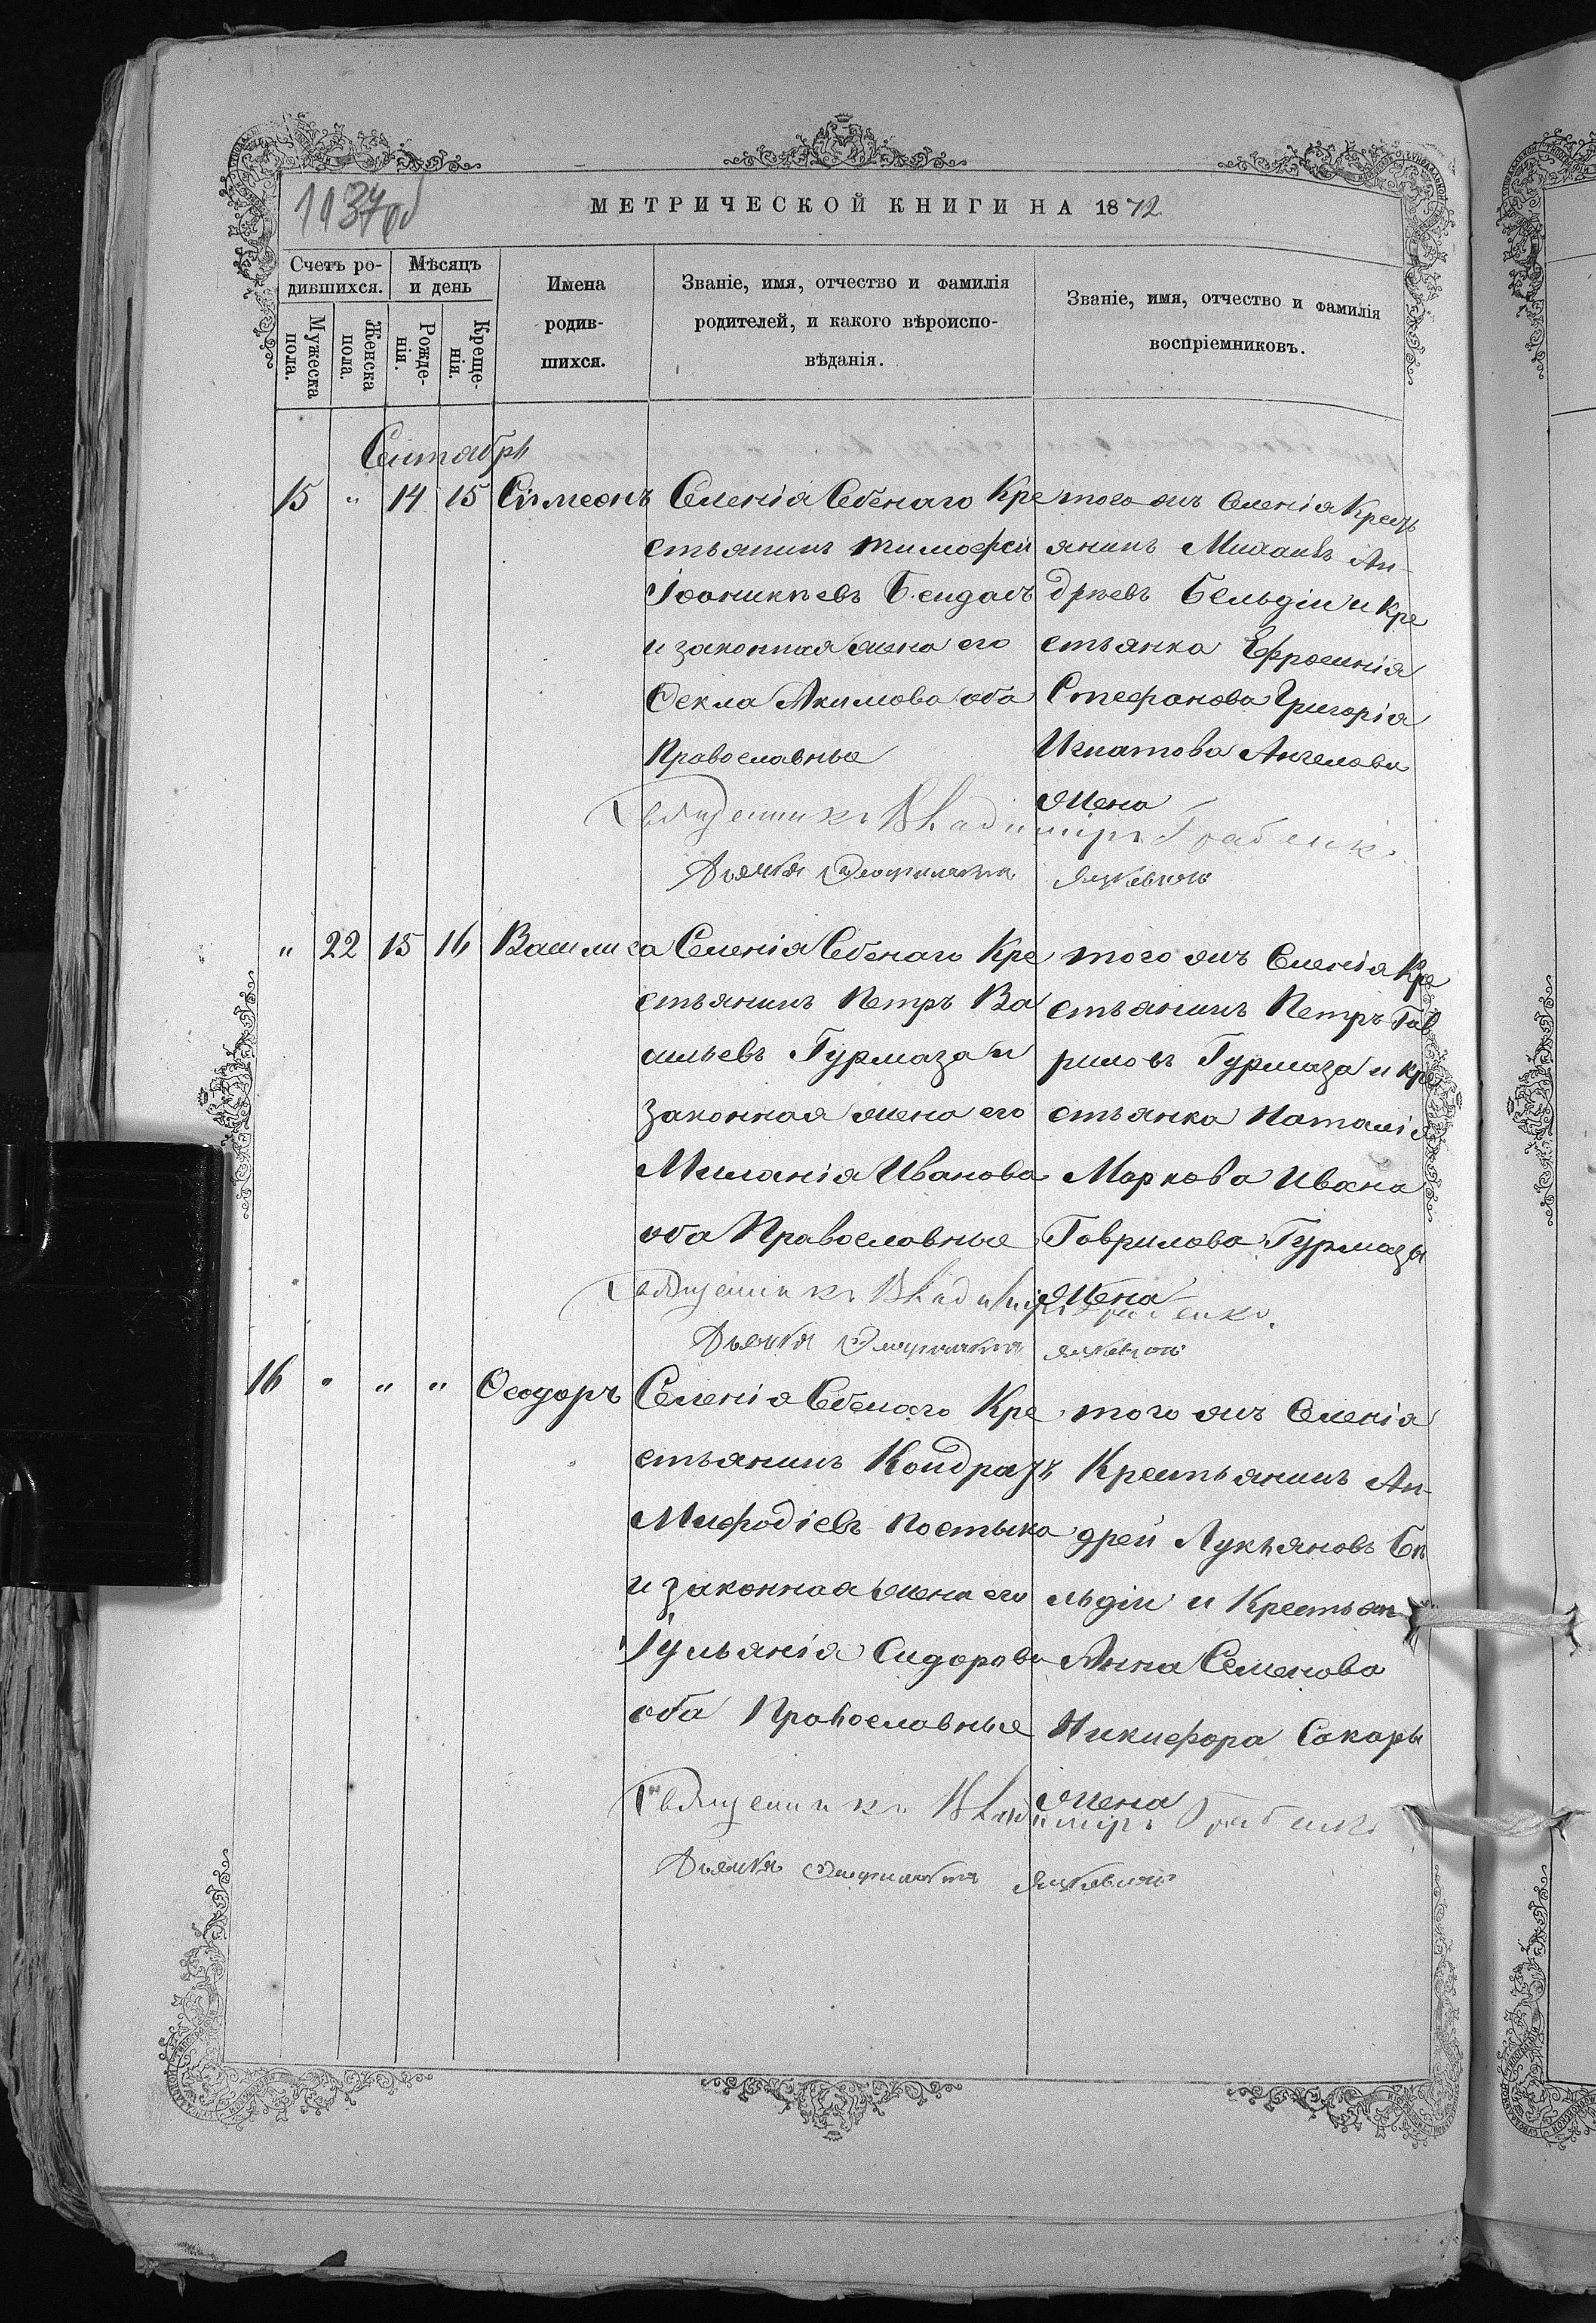 1137 об
МЕТРИЧЕСКОЙ КНИГИ НА 1872
Счетъ ро-
дившихся.
Мѣсяцъ
и день
Мужеска
пола.
Женска
пола.
Рожде-
нія.
Креще-
нія.
Имена
родив-
шихся.
Званіе, имя, отчество и фамилія
родителей, и какого вѣроиспо-
вѣданія.
Званіе, имя, отчество и фамилія
воспріемниковъ.
Сентябрь
15 " 14 15 Симеонъ
Селенія Себенаго Кре
стьянинъ Тимофей
Іоаникіевъ Бендасъ
и законная жена его
Ѳекла Акимова оба
Православные
того жъ Селенія Кресть
янинъ Михаилъ Ан-
дреевъ Бельдіи и Кре
стьянка Ефросинія
Стефанова Григорія
Игнатова Ангелова
жена
Священникъ Владиміръ Грабенко
Дьячокъ
" 22 15 16 Василиса
Селенія Себенаго Кре
стьянинъ Петръ Ва
сильевъ Гурмаза и
законная жена его
Миланія Иванова
оба Православные
того жъ Селенія Кре
стьянинъ Петръ Гав
риловъ Гурмаза и кре
стьянка Наталія
Маркова Ивана
Гаврилова Гурмазы
жена
Священникъ Владиміръ Грабенко.
Дьячокъ
16 " " " Ѳеодоръ
Селенія Себенаго Кре
стьянинъ Кондратъ
Мифодіевъ Постыка
и законная жена его
Іульянія Сидорова
оба Православные
того жъ Селенія
Крестьянинъ Ан-
дрей Лукьяновъ Бе
льдіи и Крестьян
Анна Семенова
Никифора Сакары
жена
Священникъ Владиміръ Грабенко
Дьячокъ